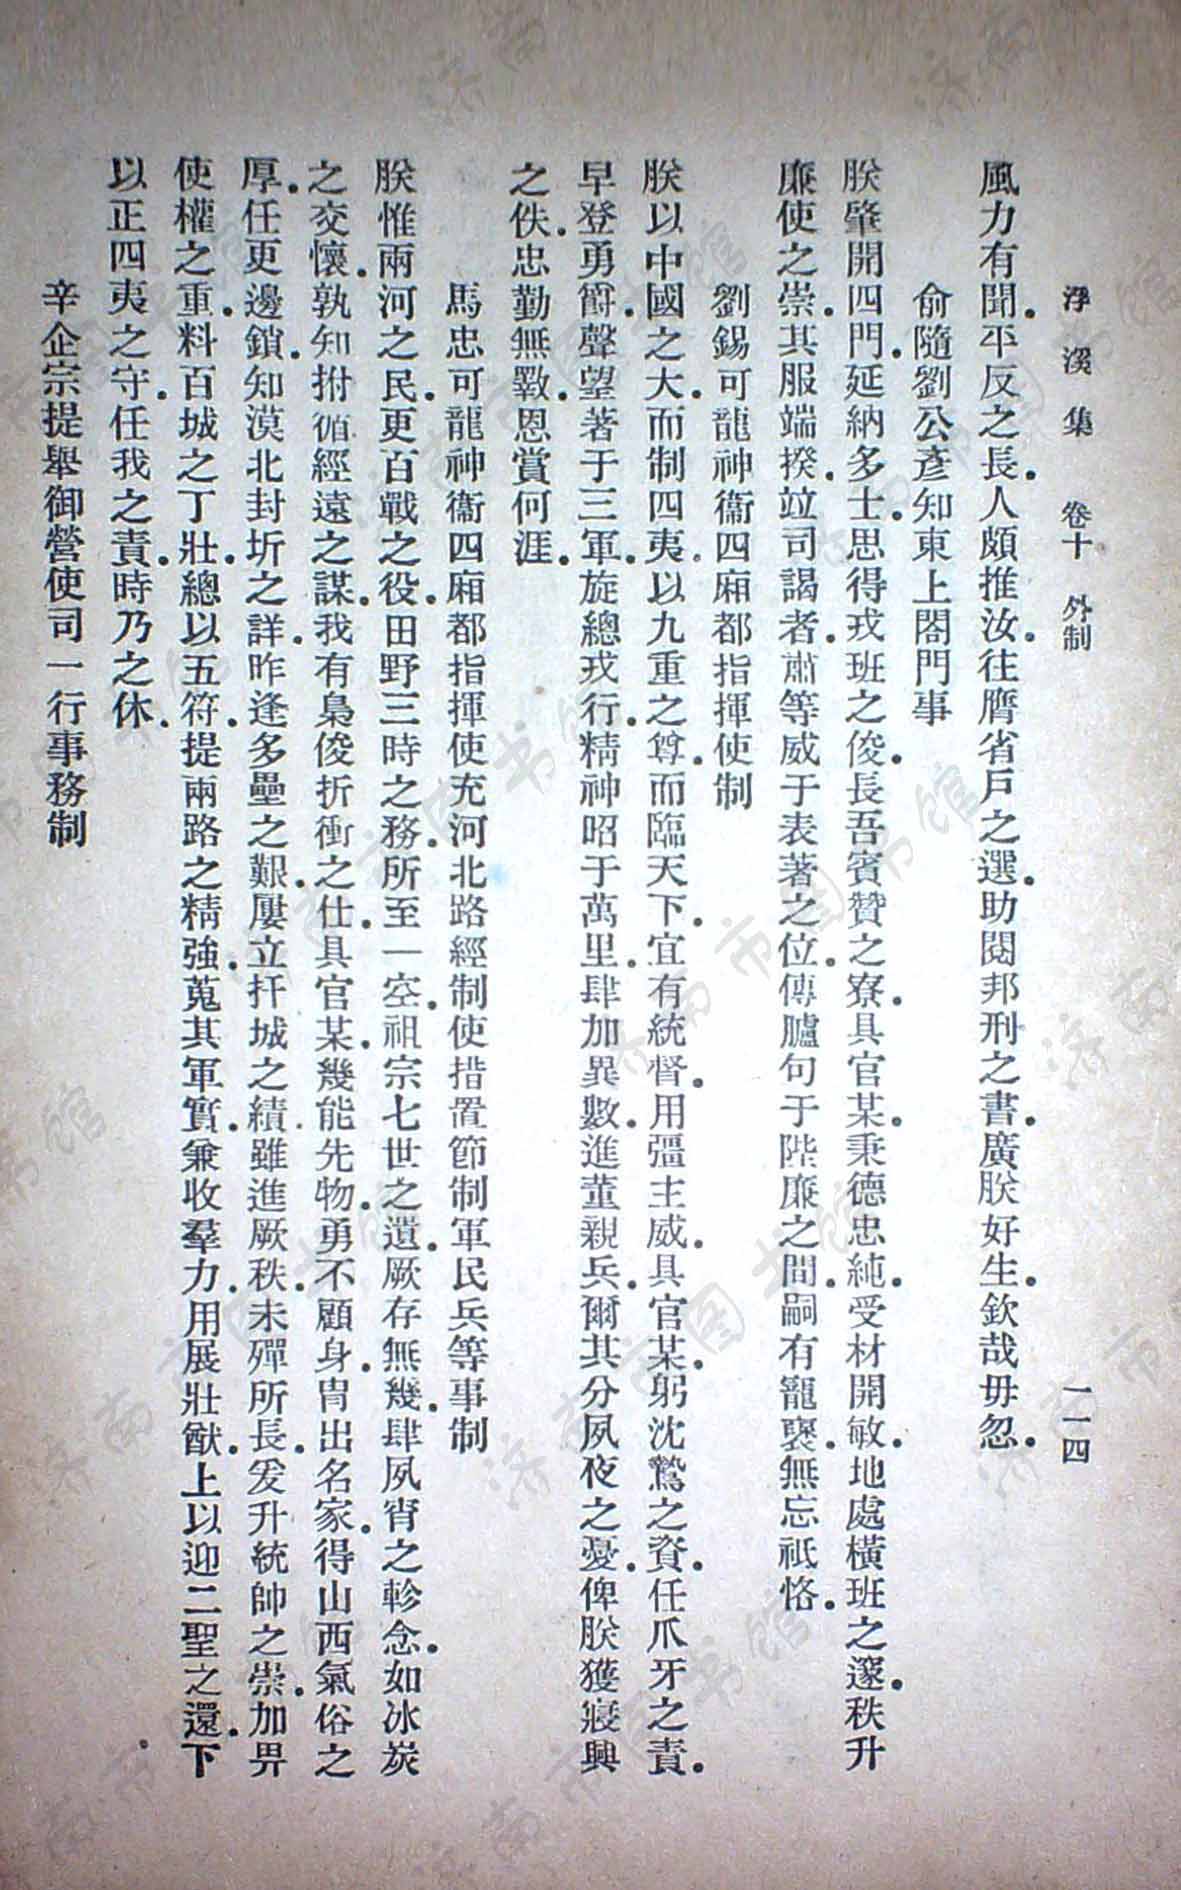 浮溪集 卷十 外制 一一四
風力有聞.平反之長.人頗推汝.往膺省戶之選.助閱邦刑之書.廣朕好生.欽哉毋忽.
俞隨劉公彥知東上閤門事
朕肇開四門.延納多士.思得戎班之俊.長吾賓贊之寮.具官某.秉德忠純.受材開敏.地處橫班之邃.秩升
廉使之崇.其服端揆.竝司謁者.肅等威于表著之位.傳臚句于陛廉之間.嗣有寵褒.無忘祇恪.
劉錫可龍神衞四廂都指揮使制
朕以中國之大.而制四夷.以九重之尊.而臨天下.宜有統督.用彊主威.具官某.躬沈鷙之資.任爪牙之責.
早登勇爵.聲望著于三軍.旋總戎行.精神昭于萬里.肆加異數.進董親兵.爾其分夙夜之憂.俾朕獲寢興
之佚.忠勤無斁.恩賞何涯.
馬忠可龍神衞四廂都指揮使充河北路經制使措置節制軍民兵等事制
朕惟兩河之民.更百戰之役.田野三時之務.所至一空.祖宗七世之遺.厥存無幾.肆夙宵之軫念.如冰炭
之交懷.孰知拊循經遠之謀.我有梟俊折衝之仕.具官某.幾能先物.勇不顧身.冑出名家.得山西氣俗之
厚.任更邊鎖.知漠北封圻之詳.昨逢多壘之艱.屢立扞城之績.雖進厥秩.未殫所長.爰升統帥之崇.加畀
使權之重.料百城之丁壯.總以五符.提兩路之精強.蒐其軍實.兼收羣力.用展壯猷.上以迎二聖之還.下
以正四夷之守.任我之責.時乃之休.
辛企宗提舉御營使司一行事務制